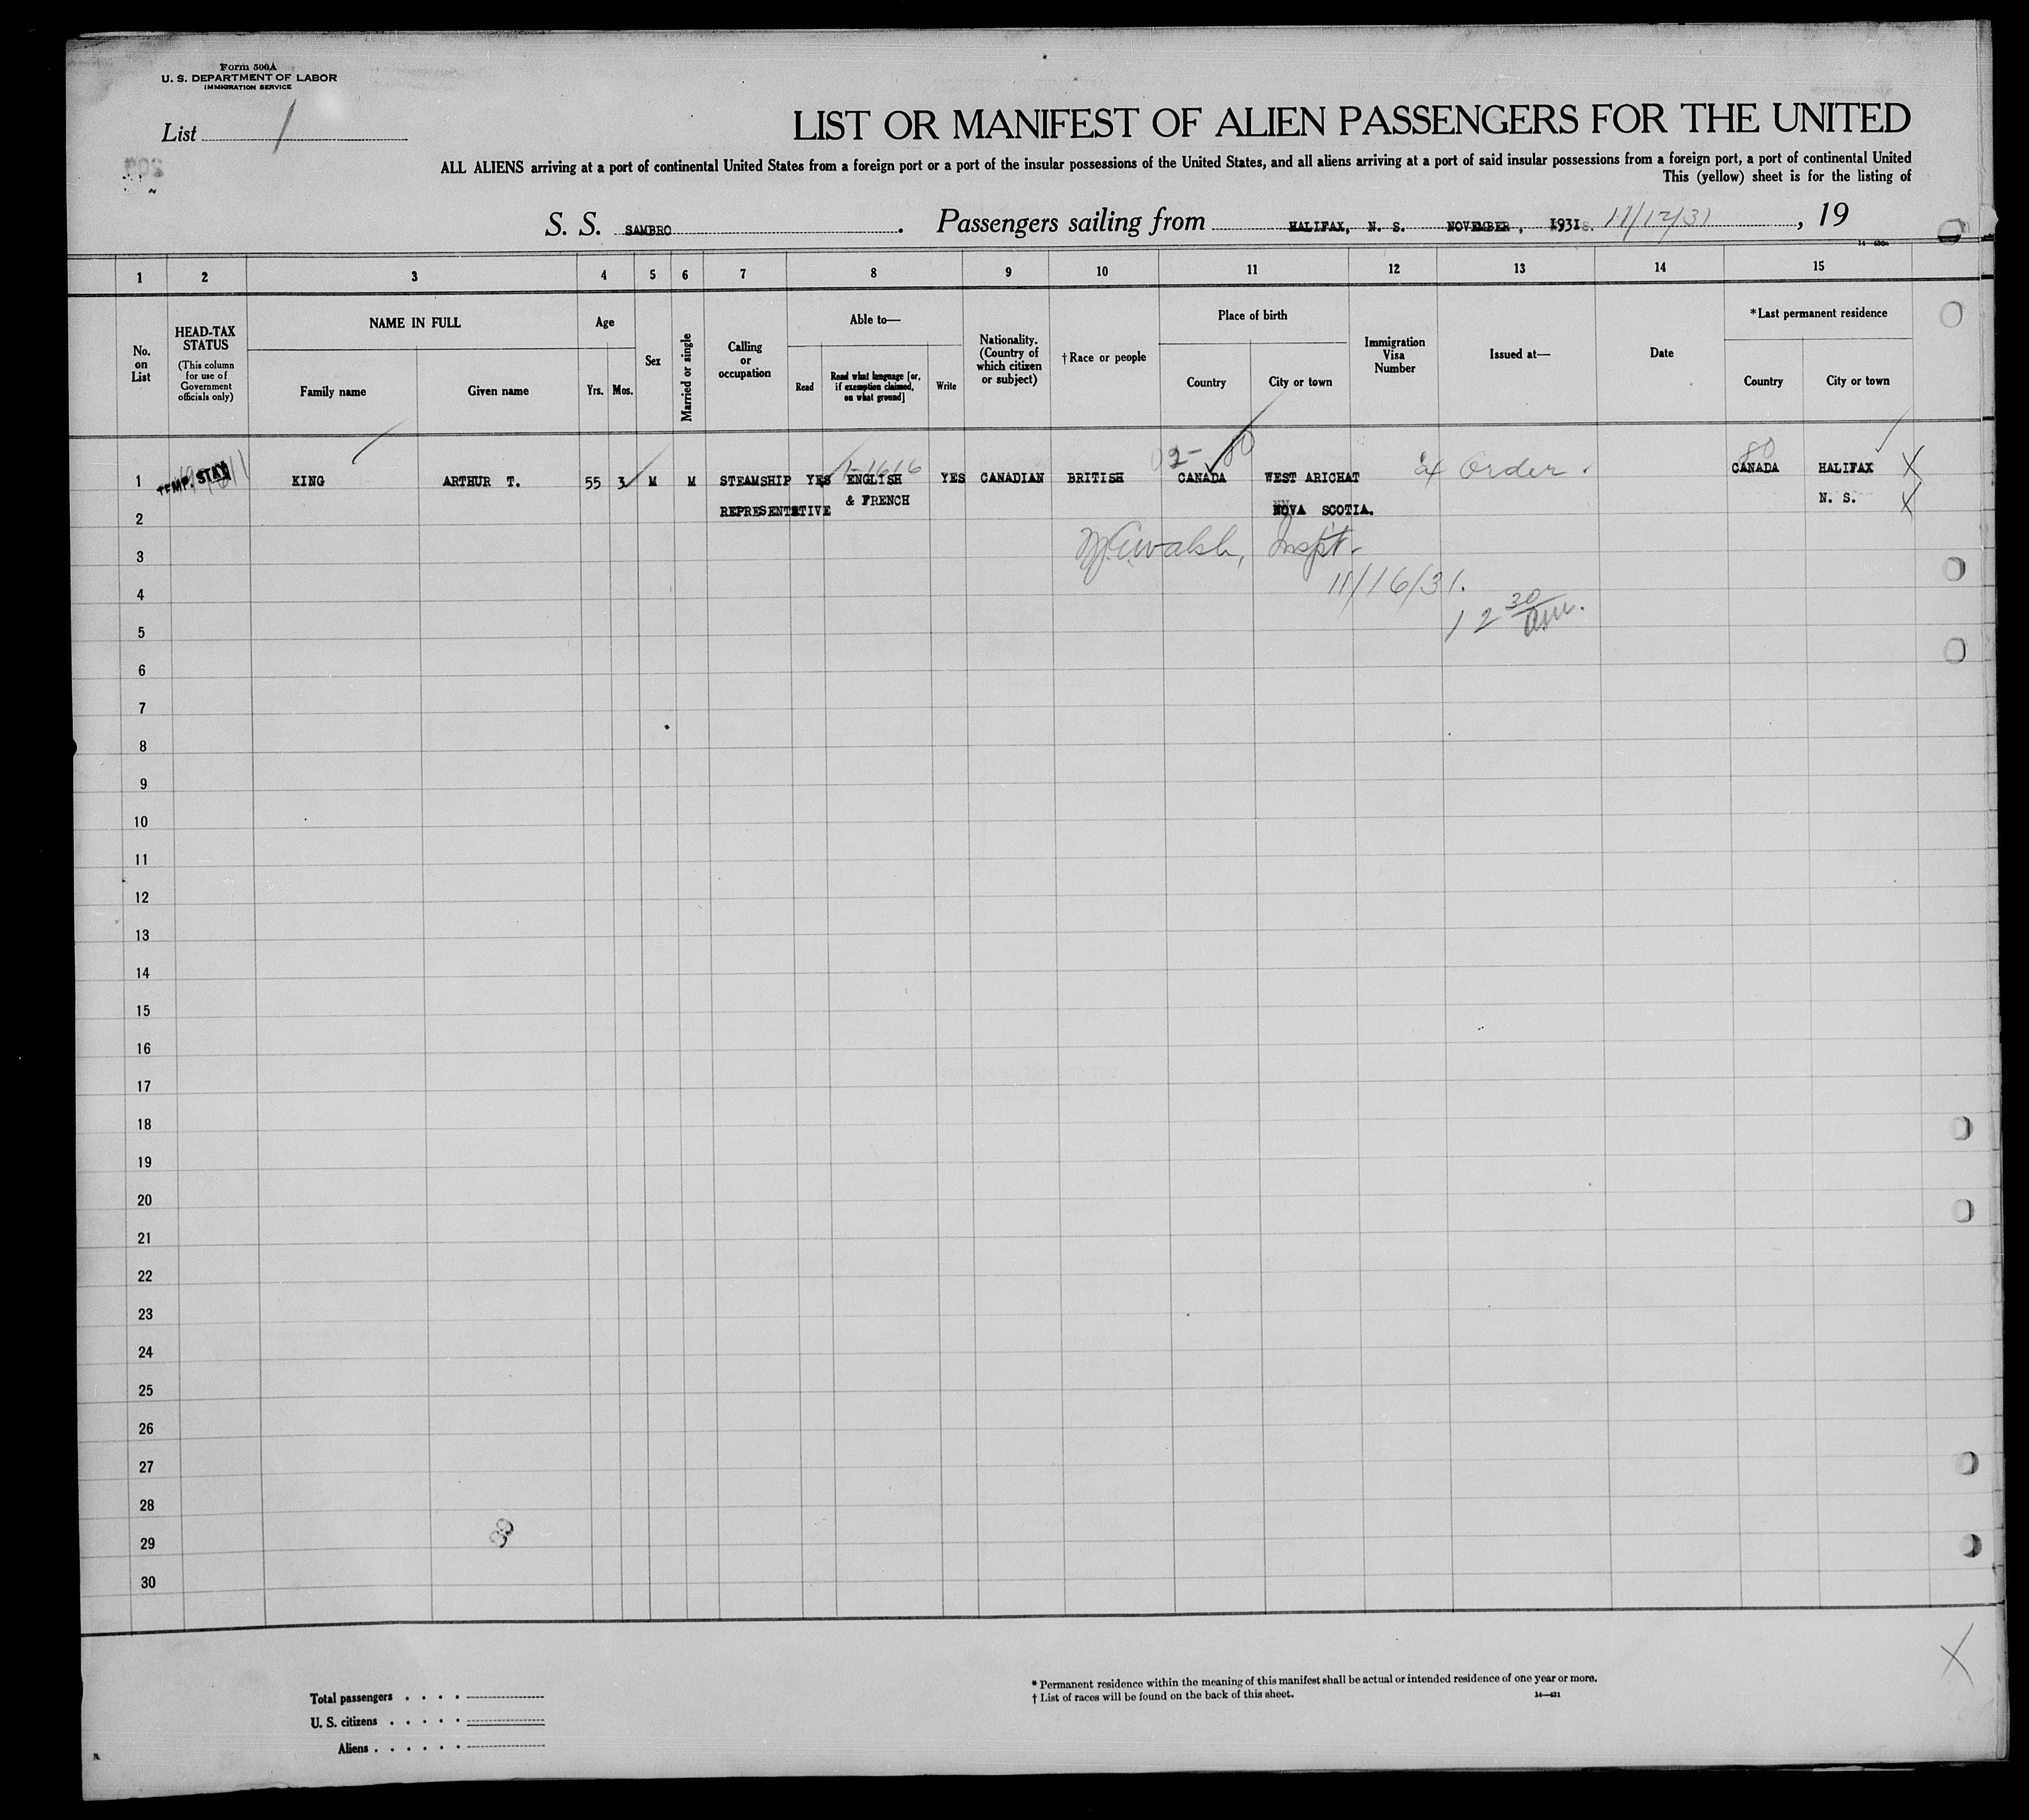 Form 500A
U. S. DEPARTMENT OF LABOR
IMMIGRATION SERVICE
List 1
LIST OR MANIFEST OF ALIEN PASSENGERS FOR THE UNITED
ALL ALIENS arriving at a port of continental United States from a foreign port or a port of the insular possessions of the United States, and all aliens arriving at a port of said insular possessions from a foreign port, a port of continental United
This (yellow) sheet is for the listing of
S. S. SAMBRO. Passengers sailing from HALIFAX, N. S. NOVEMBER , 1931 11/12/31, 19
1 2 3 4 5 6 7 8 9 10 11 12 13 14 15
No. on List
HEAD-TAX STATUS
(This column for use of Government officials only)
NAME IN FULL
Family name
Given name
Age
Yrs. Mos.
Sex
Married or single
Calling or occupation
Able to—
Read
Read what language [or, if exemption claimed, on what ground]
Write
Nationality. (Country of which citizen or subject)
†Race or people
Place of birth
Country
City or town
Immigration Visa Number
Issued at—
Date
*Last permanent residence
Country
City or town
02- 80 80
1 TEMP. STAY KING ARTHUR T. 55 3 M M STEAMSHIP YES ENGLISH YES CANADIAN BRITISH CANADA WEST ARICHAT Order. CANADA HALIFAX X
REPRESENTATIVE & FRENCH NOVA SCOTIA. N. S. X
2
3 Walsh, Inspt.
4 11/16/31.
5 12 30 am.
6
7
8
9
10
11
12
13
14
15
16
17
18
19
20
21
22
23
24
25
26
27
28
29
30
X
Total passengers . . . .
U. S. citizens . . . . .
Aliens . . . . . .
* Permanent residence within the meaning of this manifest shall be actual or intended residence of one year or more.
† List of races will be found on the back of this sheet. 14—431